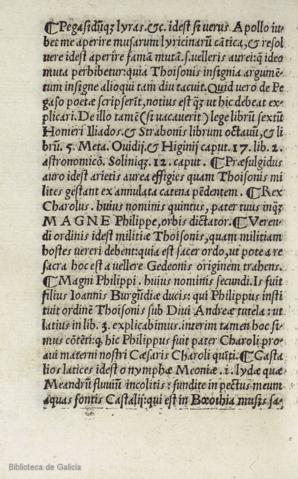 ¶Pegasidũqꝫ lyras.&c. idest si verus Apollo iu
bet me aperire musarum lyricinarũ cãtica, & resol
uere idest aperire famã mutã. s. velleris aurei: q̃ ideo
muta perhibetur: quia Thoisonis insignia argumẽ-
tum insigne alioqui tam diu tacuit. Quid vero de Pe
gaso poetæ scripserit, notius est q̃ꝫ vt hic debeat ex-
plicari. De illo tamẽ (si vacauerit) lege librũ sextũ
Homeri Iliados. & Strabonis librum octauũ, & li
brũ. 5. Meta. Ouidij. & Higinij caput. 17. lib. 2.
astronomicõ. Soliniqꝫ. 12. caput. ¶Præfulgidus
auro idest arietis aurea effigies quam Thoisonis mi
lites gestant ex annulata catena pẽdentem. ¶Rex
Charolus. huius nominis quintus, pater tuus inqꝫ
MAGNE Philippe, orbis dictator. ¶Veren-
di ordinis idest militiæ Thoisonis, quam militiam
hostes vereri debent: quia est sacer ordo, vt pote a re
sacra hoc est a vellere Gedeonis originem trahens.
¶Magni Philippi. huius nominis secundi. Is fuit
filius Ioannis Burgũdiæ ducis: qui Philippus insti
tuit ordinẽ Thoisonis sub Diui Andreæ tutela: vt
latius in lib. 3. explicabimus. interim tamen hoc si-
mus cõtẽti: q̃ hic Philippus fuit pater Charoli: pro-
aui materni nostri Cæsaris Charoli quĩti. ¶Casta
lios latices idest o nymphæ Meoniæ .i. lydæ quæ
Meandrũ fluuiũ incolitis: fundite in pectus meum
aquas fontis Castalij: qui est in Bœothia musis sa-
Biblioteca de Galicia